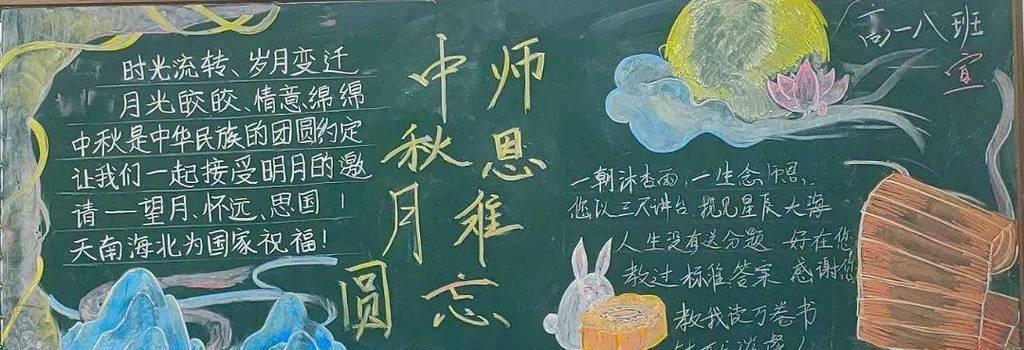 时光流转、岁月变迁
月光皎皎、情意绵绵
中秋是中华民族的团圆约定
让我们一起接受明月的邀
请——望月、怀远、思国！
天南海北为国家祝福！
师恩难忘
中秋月圆
高一八班
宣
一朝沐杏雨，一生念师恩，
您以三尺讲台，揽见星辰大海
人生没有送分题 好在您
教过标准答案 感谢您
教我读万卷书